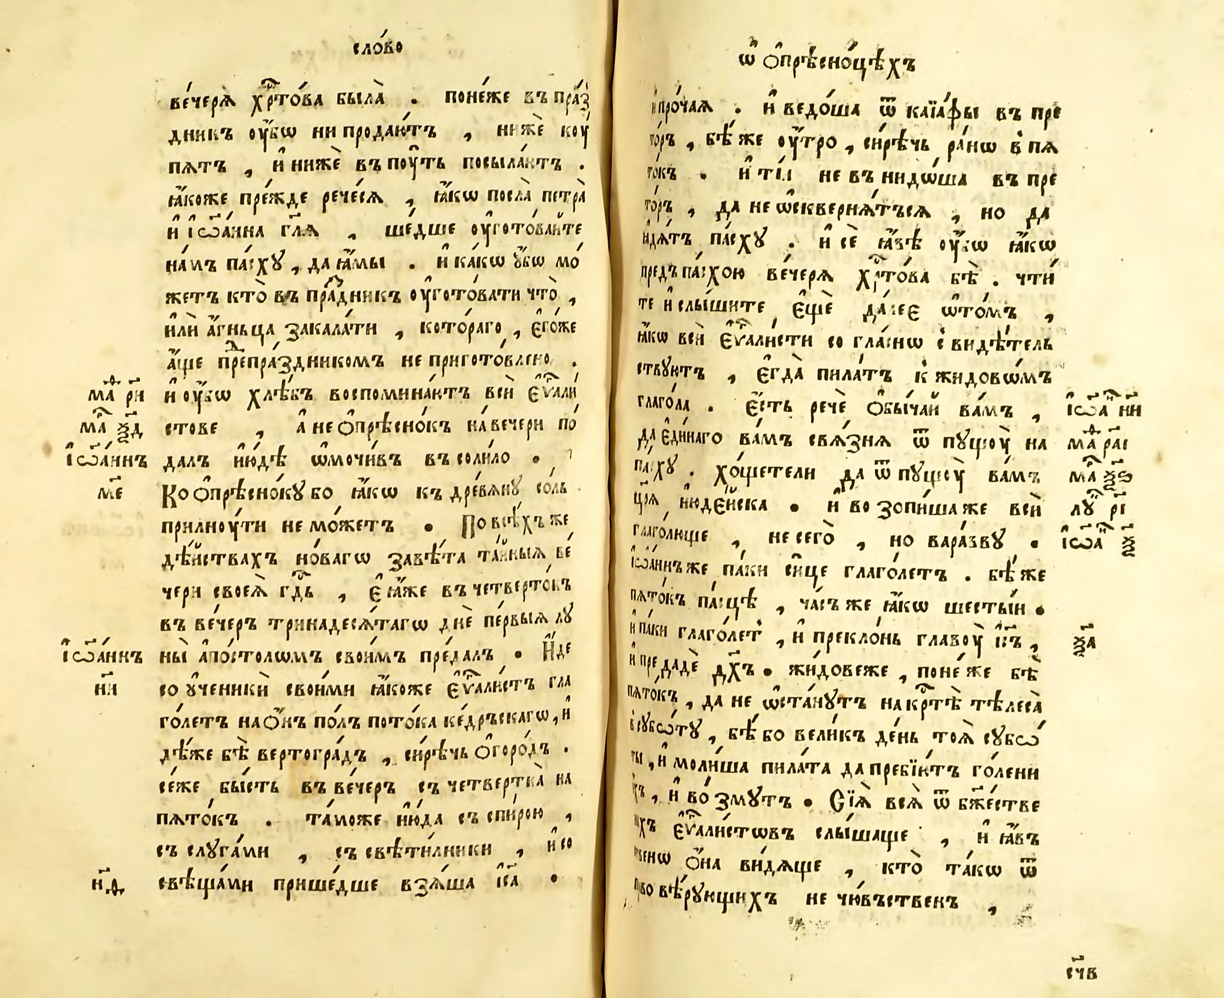 сло́во
вече́рѧ хр҇то́ва была̀ . поне́же въ пра́з
дникъ ѹ҆́бѡ ни продаю́тъ , ни́же кѹ
пѧтъ , и҆ нижѐ въ пѹ́ть посыла́ютъ .
ꙗ҆́коже пре́жде рече́сѧ , ꙗ҆́кѡ посла̀ петра̀
и҆ і҆ѡа́нна гл҃ѧ , ше́дше ѹ҆гото́вайте
на́мъ па́сху , да ꙗ҆́мы . и҆ ка́кѡ ѹ҆́бѡ мо́
жетъ кто̀ въ пра́дникъ ѹ҆гото́вати что̀ ,
и҆лѝ а҆́гньца закала́ти , кото́раго , є҆го́же
а҆́ще пре̾пра́здникомъ не приготовлено .
и҆ ѹ҆́бѡ хлѣ́бъ воспомина́ютъ всѝ є҆ѵⷢ҇али́
стове , а҆ не ѻ҆прѣсно́къ на вече́ри по́
далъ ию҆́дѣ ѡ҆мочи́въ въ соли́ло .
Ко ѻ҆прѣсноку́ бо ꙗ҆́кѡ къ дре́вѧну соль
прилну́ти не мо́жетъ . По всѣ́хъ же
дѣ́йствахъ но́вагѡ завѣ́та та́йныѧ ве́
чери своеѧ̀ гдⷭ҇ь , є҆ ꙗ҆́же въ четверто́къ
въ ве́черъ тринадесѧ́тагѡ днѐ пе́рвыѧ лу
ны̀ а҆по́столѡмъ свои́мъ преда́лъ . И҆́де
со ѹ҆ченикѝ свои́ми ꙗ҆́коже є҆ѵⷢ҇али́стъ гла
го́летъ на ѻ҆́нъ по́лъ пото́ка ке́дръскагѡ , и҆
дѣ́же бѣ̀ вертогра́дъ , си́рѣчь ѻ҆горо́дъ .
се́же бы́сть въ ве́черъ съ четвертка̀ на
пѧто́къ . та́може ию҆́да съ спи́рою ,
съ слуга́ми , съ свѣти́лники , и҆ со
свѣща́ми прише́дше взѧ́ша і҆с҃а .
маⷴ҇ рн
маⷬ҇ ѯд
і҆ѡа́ннъ
м҃е
і҆ѡа́ннъ
н҃н
н҃ф
ѡ҆ ѻ҆прѣсно́цѣхъ
и҆ про́чаѧ . и҆ ведо́ша ѿ каїа́фы въ пре
то́ръ , бѣ́ же ѹ҆́тро , си́рѣчь ра́нѡ в пѧ
то́къ . и҆ ті́и не внидо́ша въ пре
то́ръ , да не ѡ҆сквернѧ́тъсѧ , но да
ꙗ҆дѧ́тъ па́сху . и҆ сѐ ꙗ҆́вѣ ѹ҆́бѡ ꙗ҆́кѡ
пре́дъ па́схою вече́рѧ хр҇то́ва бѣ̀ . чти́
те и҆ слы́шите є҆щѐ да́лее ѡ҆ то́мъ ,
ꙗ҆́кѡ всѝ є҆ѵⷢ҇али́сти согла́снѡ свидѣ́тель
ствуютъ , є҆гда̀ пила́тъ к жидовѡ́мъ
глаго́ла . є҆́сть речѐ ѻ҆бы́чай ва́мъ ,
да є҆ди́наго ва́мъ свѧ́знѧ ѿ пущу̀ на
па́сху . хо́щетели да ѿ пущу̀ ва́мъ
цр҃ѧ̀ ию҆де́йска . и҆ возопи́ша же всѝ
глаго́люще , не сего̀ , но вара́вву .
і҆ѡа́ннъ же па́ки си́це глаго́летъ . бѣ́ же
пѧто́къ па́сцѣ , ча́съ же ꙗ҆́кѡ шесты́й .
и҆ па́ки глаго́летъ , и҆ прекло́нь главу̀ і҆с҃ъ ,
и҆ предадѐ дх҃ъ . жидове́же , поне́же бѣ̀
пѧто́къ , да не ѡ҆ста́нутъ на крⷭ҇тѣ̀ тѣлеса̀
в суббѡ́ту , бѣ́ бо вели́къ де́нь тоѧ̀ суббѡ́
ты , и҆ моли́ша пила́та да пребію́тъ го́лени
и҆́хъ , и҆ во́змутъ . Сїѧ̀ всѧ̀ ѿ бж҃е́стве
ныхъ є҆ѵⷢ҇али́стѡвъ слы́шаще , и҆ ꙗ҆́въ
ственѡ ѻ҆на̀ ви́дѧще , кто̀ та́кѡ ѿ
пра́во вѣ́рующихъ не чю́въственъ ,
і҆ѡа́ нн
маⷴ҇ раі
маⷬ҇ ѯѕ
лу рі
і҆ѡа́ ѯ
ѯа
сч҃в